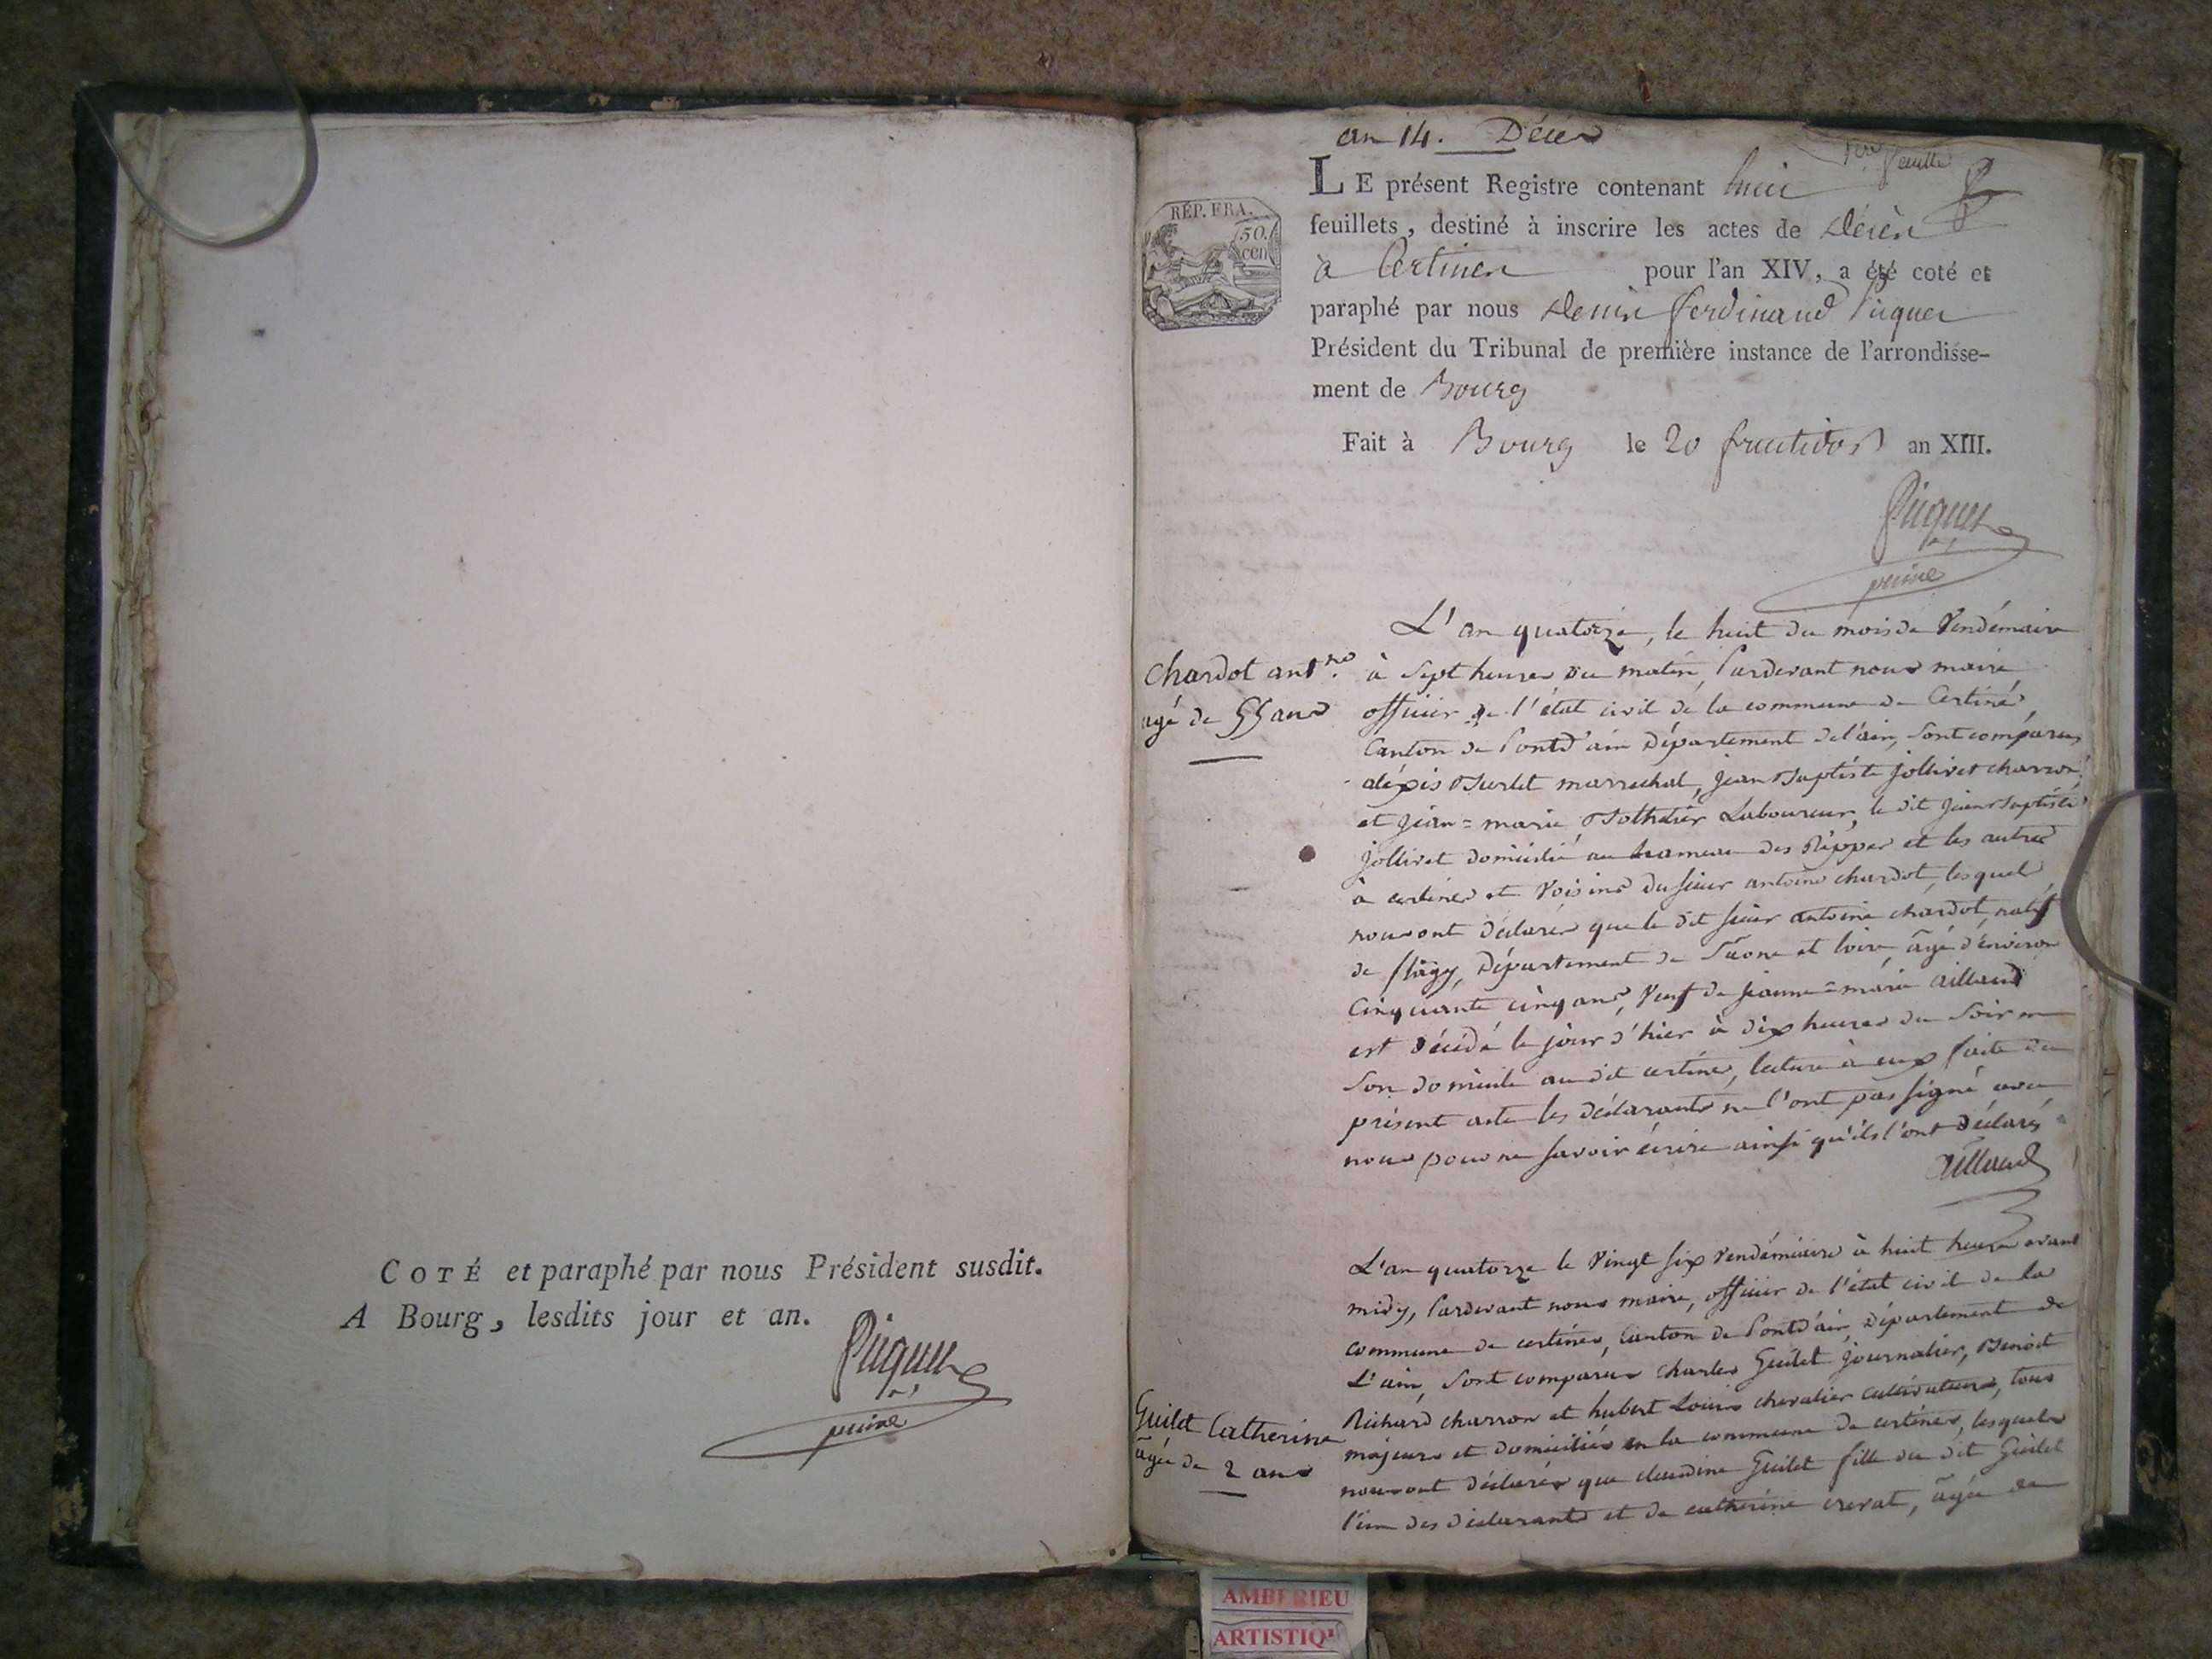 COTÉ et paraphé par nous Président susdit.
A Bourg, lesdits jour et an.
Picquet
an 14. Décès
1er feuillet
RÉP. FRA.
50.
cen
LE présent Registre contenant huit
feuillets, destiné à inscrire les actes de décès
à Certines pour l'an XIV, a été coté et
paraphé par nous Denis ferdinand Picquet
Président du Tribunal de première instance de l'arrondisse-
ment de Bourg
Fait à Bourg le 20 fructidor an XIII.
Picquet
L'an quatorze, le huit du mois de Vendémaire
Chardot antne
agé de 55 ans
à Sept heures du matin, Pardevant nous maire
officier de l'état civil de la commune de Certines,
Canton de Pontd'ain Département de l'ain, Sont comparus
aléxis Burlet marrechal, jean Baptiste jollivet charron,
et jean=marie Bolthelier Laboureur, le dit jean Baptiste
jollivet domicilié au hameau des Rippes et les autres
à certines et Voisins du sieur antoine chardot, lesquels
nous ont déclarés que le dit sieur antoine chardot, natif
de flagy, Département de Saone et loire, âgé d'environ
Cinquante cinq ans, Veuf de jeanne=marie aillaud
est décédé le jour d'hier à dix heures du Soir en
Son domicile au dit certines, lecture à eux faite du
présent acte les déclarants ne l'ont pas signé avec
nous pour ne savoir écrire ainsi qu'ils l'ont déclarés
aillaud
L'an quatorze le Vingt six Vendémiaire à huit heures avant
midy, Pardevant nous maire, officier de l'état civil de la
commune de certines, Canton de Pontd'ain Département de
L'ain, Sont comparus charles Guilet journalier, Benoit
Richard charron et hubert Louis chevalier cultivateurs, tous
Guilet Catherine
âgée de 2 ans
majeurs et domiciliés en la commune de certines, lesquels
nous ont déclarés que claudine Guilet fille du dit Guilet
l'un des déclarants et de catherine cravat, âgée de
AMBERIEU
ARTISTIQU